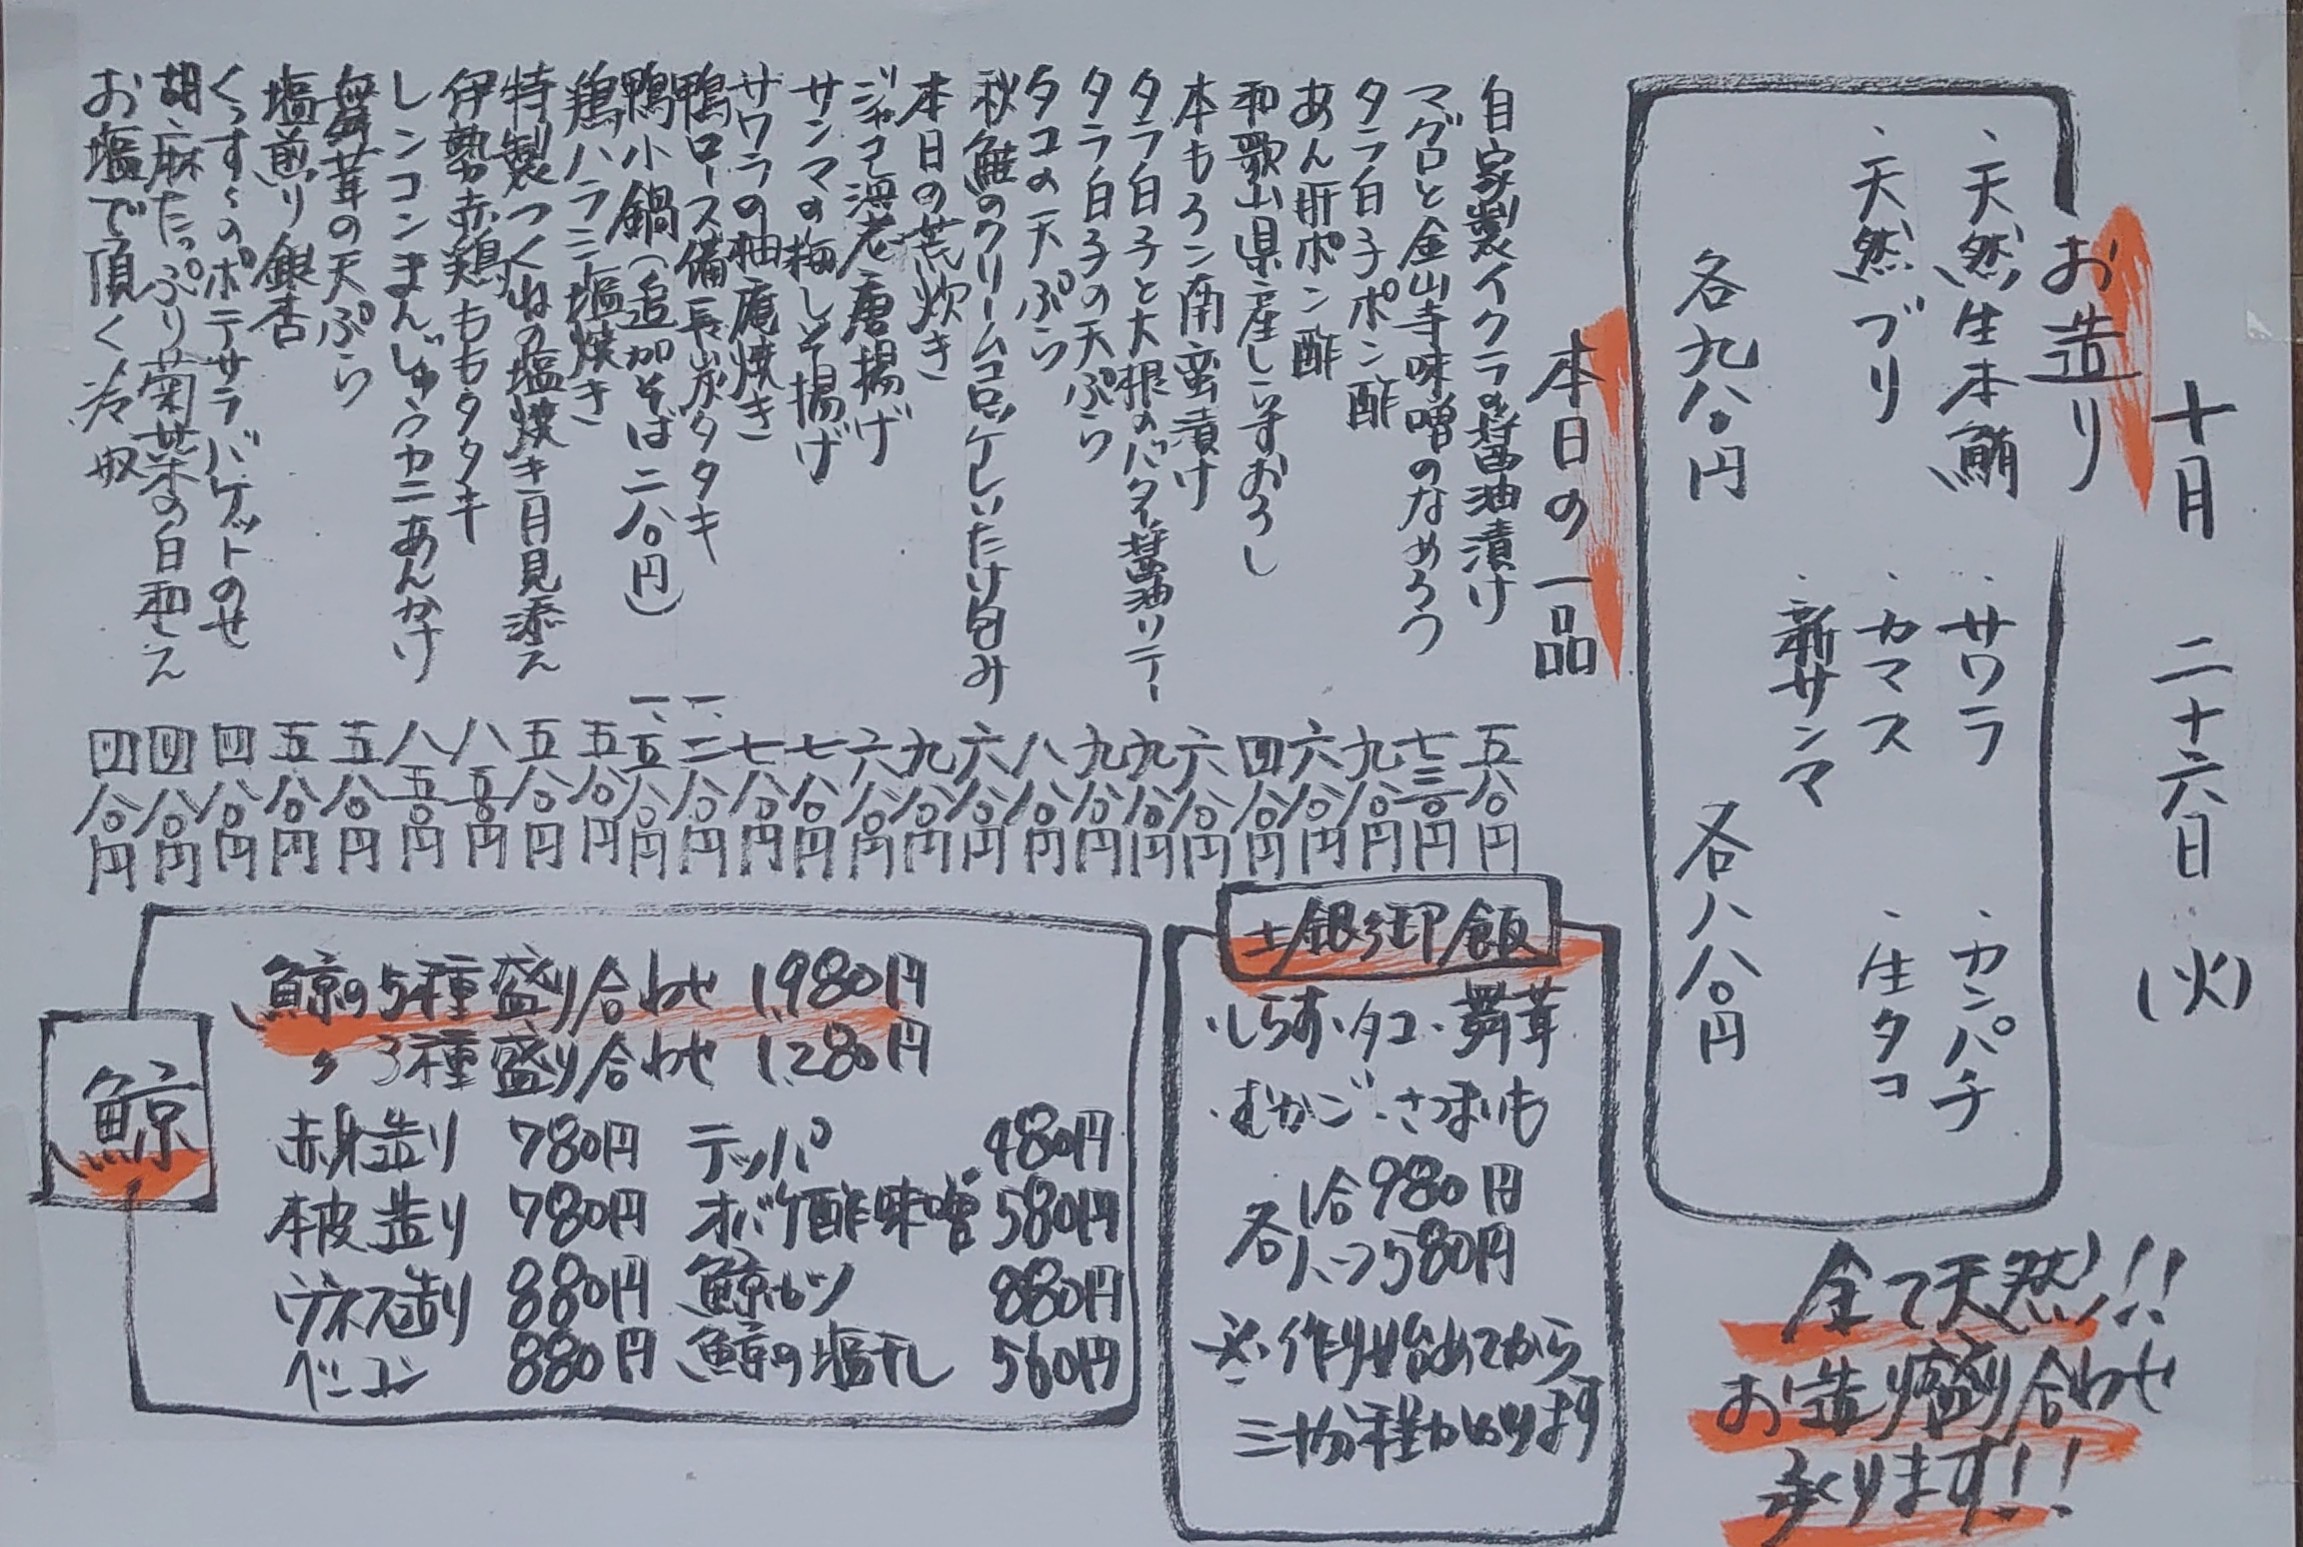 十月 二十六日 (火)
お造り
・天然生本鮪 ・サワラ ・カンパチ
・天然ブリ ・カマス ・生タコ
・新サンマ
各九八〇円 各八八〇円
全て天然!!
お造り盛り合わせ
承ります!!
本日の一品
自家製イクラの醤油漬け 五八〇円
マグロと金山寺味噌のなめろう 七三〇円
タラ白子ポン酢 九八〇円
あん肝ポン酢 六八〇円
和歌山県産しらすおろし 四八〇円
本もろこ南蛮漬け 六八〇円
タラ白子と大根のバター醤油ソテー 九八〇円
タラ白子の天ぷら 九八〇円
タコの天ぷら 八八〇円
秋鮭のクリームコロッケしいたけ包み 六八〇円
本日の荒炊き 九八〇円
ジャコ海老唐揚げ 六八〇円
サンマの梅しそ揚げ 七八〇円
サワラの柚庵焼き 七八〇円
鴨ロース備長炭タタキ 一、二八〇円
鴨小鍋(追加そば二八〇円) 一、五八〇円
鶏ハラミ塩焼き 五八〇円
特製つくねの塩焼き月見添え 五八〇円
伊勢赤鶏ももタタキ 八五〇円
レンコンまんじゅうカニあんかけ 八五〇円
舞茸の天ぷら 五八〇円
塩煎り銀杏 五八〇円
くっすぅのポテサラバゲットのせ 四八〇円
胡麻たっぷり菊菜の白和え 四八〇円
お塩で頂く冷奴 四八〇円
土鍋御飯
・しらす・タコ・舞茸
・むかご・さつまいも
各1合980円
各ハーフ580円
※作り始めてから
三十分程かかります
鯨
鯨の5種盛り合わせ 1,980円
〃 3種盛り合わせ 1,280円
赤身造り 780円 テッパ 480円
本皮造り 780円 オバケ酢味噌 580円
ウネス造り 880円 鯨カツ 880円
ベーコン 880円 鯨の塩干し 560円